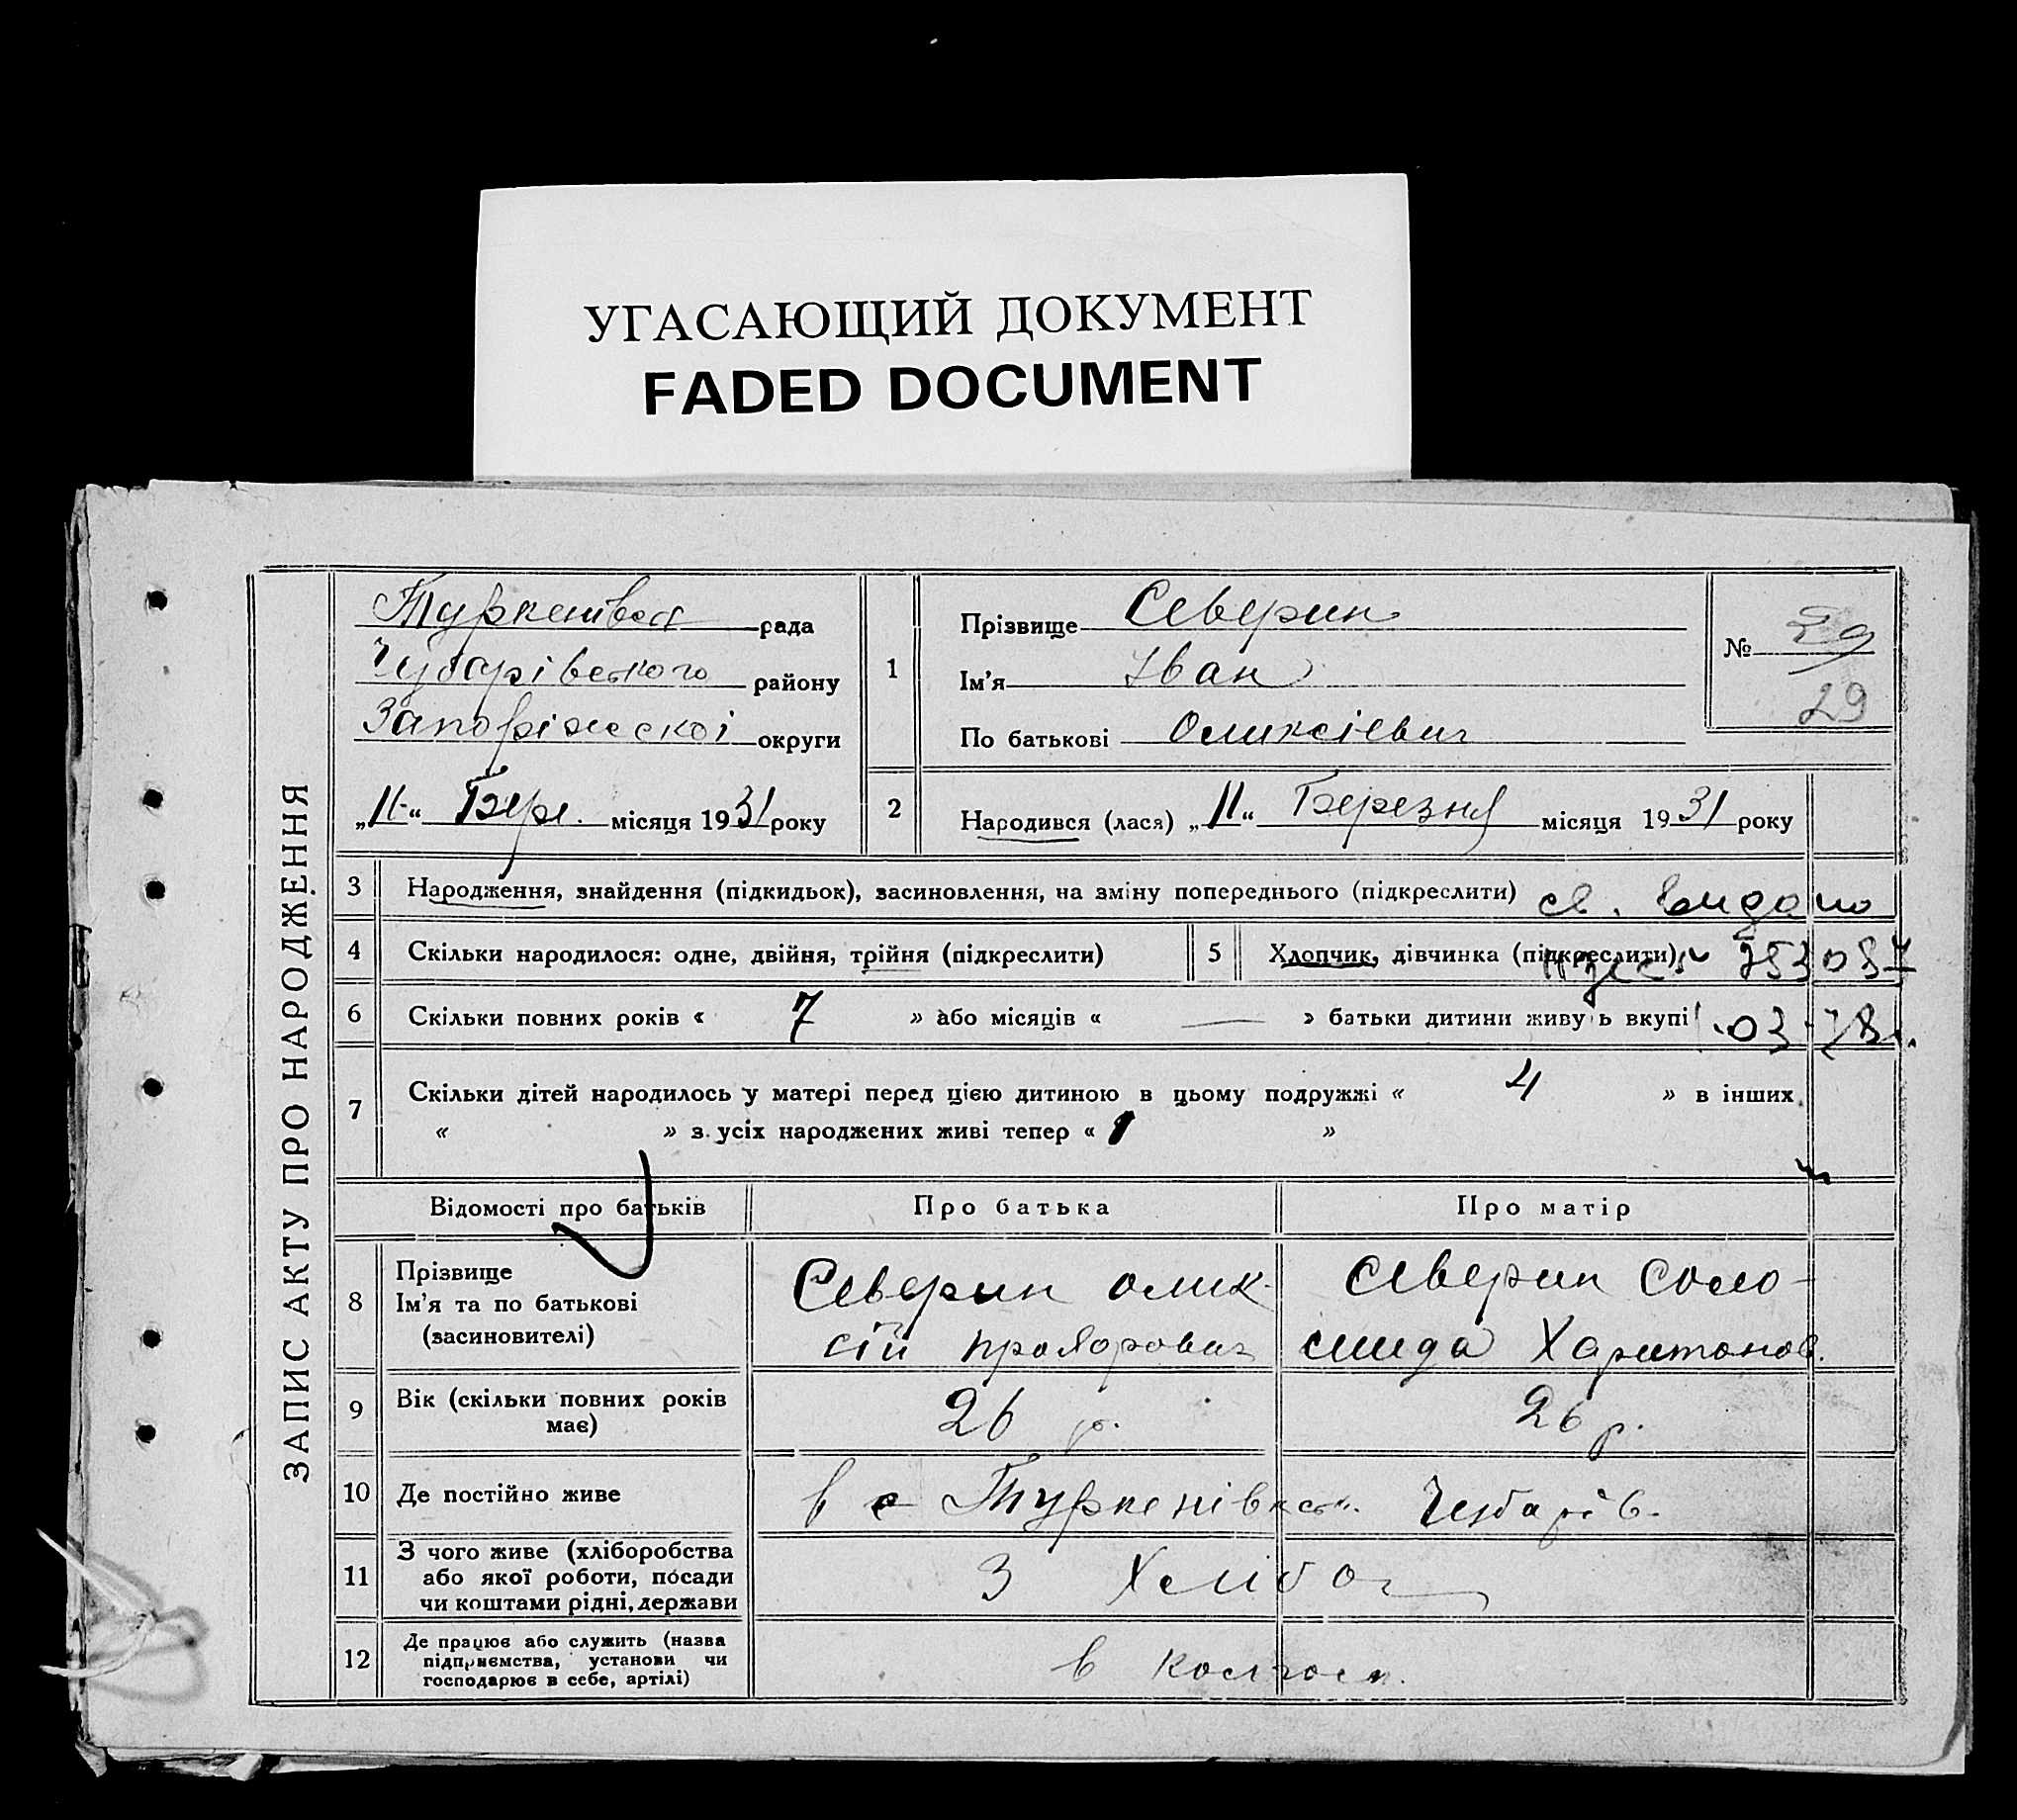 УГАСАЮЩИЙ ДОКУМЕНТ
FADED DOCUMENT
ЗАПИС АКТУ ПРО НАРОДЖЕННЯ
рада
Чубарівського району
Запоріжської округи
„11“ Бере. місяця 1931 року
1
Прізвище Северин
Ім'я Іван
По батькові Оликсієвич
№ 29
29
2
Народився (лася) „11“ Березня місяця 1931 року
3 Народження, знайдення (підкидьок), засиновлення, на зміну попереднього (підкреслити) св. видано
4 Скільки народилося: одне, двійня, трійня (підкреслити)
5 Хлопчик, дівчинка (підкреслити)
6 Скільки повних років « 7 » або місяців « — » батьки дитини живуь вкупі
7 Скільки дітей народилось у матері перед цією дитиною в цьому подружжі « 4 » в інших
« » з усіх народжених живі тепер « »
Відомості про батьків
Про батька
Про матір
8
Прізвище
Ім'я та по батькові
(засиновителі)
Северин Олик-
сій
Северин Соло-
Харитонов.
9 Вік (скільки повних років
має)
26 р.
26 р.
10 Де постійно живе
в с Чубарів.
11
З чого живе (хліборобства
або якої роботи, посади
чи коштами рідні, держави
З
12
Де працює або служить (назва
підприємства, установи чи
господарює в себе, артілі)
в